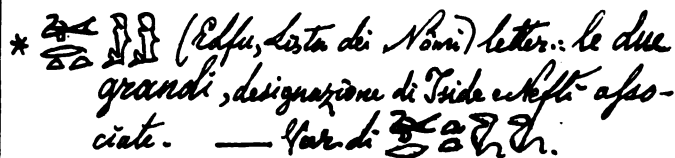 * (Edfu, Lista dei Nômi) letter.: le due
grandi, designazione di Iside e Nefti asso-
ciate. — Var. di .